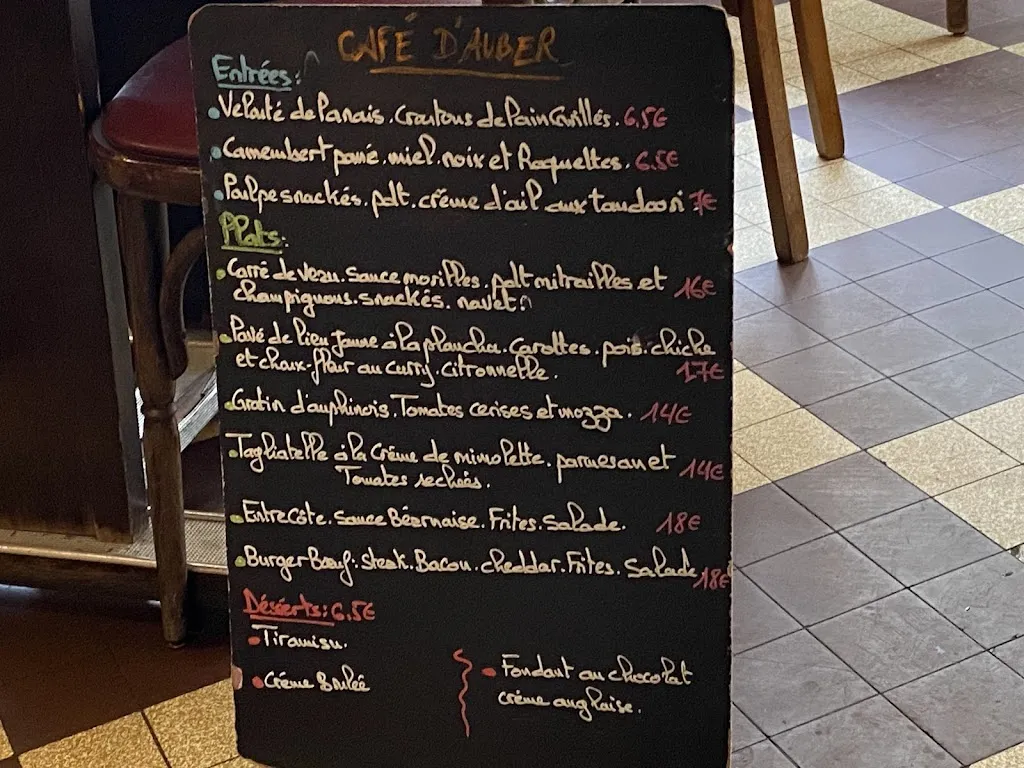 CAFÉ D'AUBER
Entrées:
Velouté de Panais. Croutons de Pain Grillés. 6,5€
Camembert pané. miel. noix et Roquettes. 6.5€
Poulpe snackés. pdt. crême d'ail aux tandoori 7€
Plats:
Carré de Veau. Sauce morilles. pdt mitrailles et 16€
champignons. snackés. navet
Pavé de lieu Jaune à la plancha. Carottes. pois. chiche
et choux-fleur au curry. citronnelle. 17€
Gratin d'auphinois. Tomates cerises et mozza. 14€
Tagliatelle à la Crème de mimolette. parmesan et 14€
Tomates sechées.
Entrecôte. Sauce Béarnaise. Frites. Salade. 18€
Burger Bœuf: Steak. Bacon. cheddar. Frites. Salade 18€
Désserts: 6,5€
Tiramisu.
Crème Brulée
Fondant au chocolat
crème anglaise.